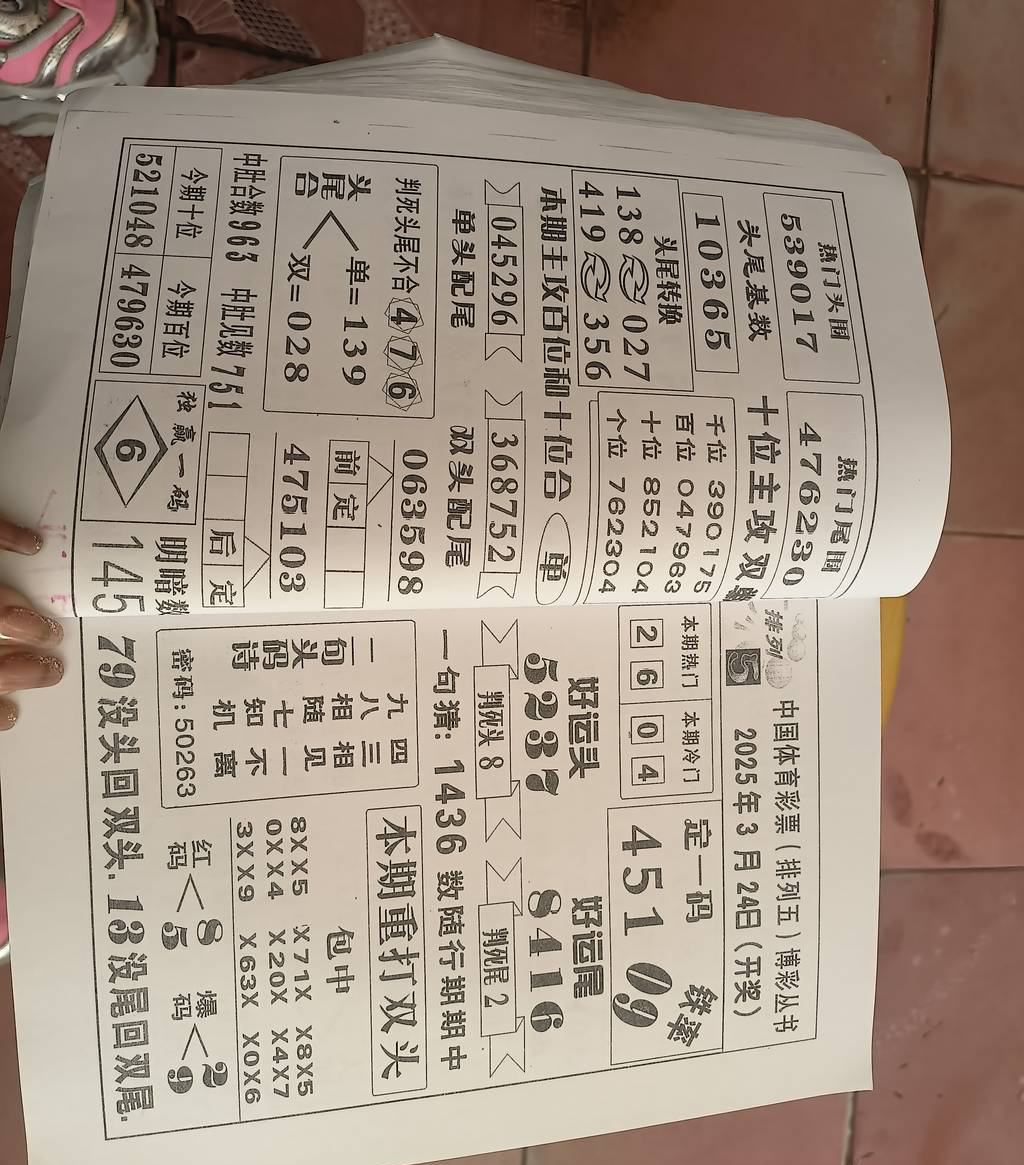 热门头围
539017
热门尾围
476230
头尾基数
10365
十位主攻双
头尾转换
138 027
419 356
千位 390175
百位 047963
十位 852104
个位 762304
本期主攻百位和十位合 单
045296
368752
单头配尾
双头配尾
判死头尾不合 4 7 6
头尾合
单=139
双=028
063598
前定
475103
后定
中肚合数963 中肚见数751
今期十位
今期百位
521048
479630
独赢一码
6
明暗数
145
排列5
中国体育彩票(排列五)博彩丛书
2025年3月24日(开奖)
本期热门
本期冷门
2 6
0 4
定一码
451 09
好运头
5237
好运尾
8416
判死头 8
判死尾 2
一句猜:1436数随行期期中
一句头码诗
九四
八三
相相
随见
七一
知不
机离
密码:50263
本期重打双头
包中
8XX5 X71X X8X5
0XX4 X20X X4X7
3XX9 X63X X0X6
红码
8
5
爆码
2
9
79没头回双头.13没尾回双尾.